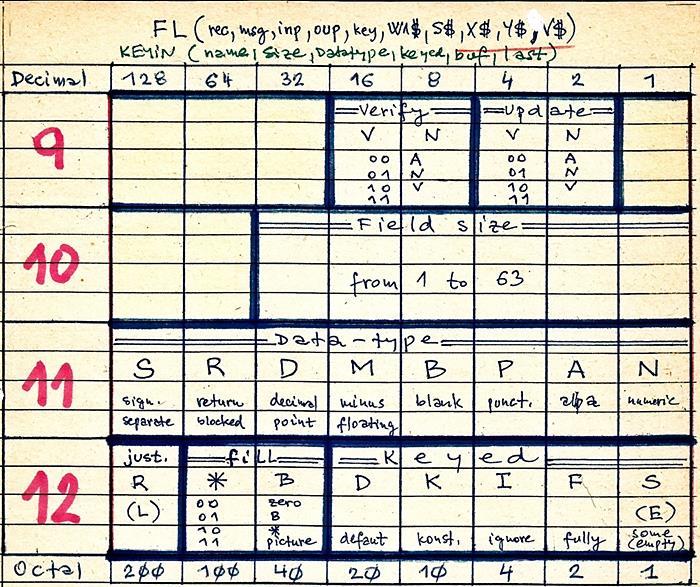 FL (rec, msg, inp, oup, key, WA$, S$, X$, Y$, V$)
KEYIN (name, size, Datatype, keyed, buf, last)
Decimal 128 64 32 16 8 4 2 1
9
Verify Update
V N V N
00 A 00 A
01 N 01 N
10 V 10 V
11 11
10
Field size
from 1 to 63
11
Data-type
S R D M B P A N
sign. return decimal minus blank punct. alpa numeric
separate blocked point floating
12
just. fill Keyed
R * B D K I F S
(L) 00 zero (E)
01 B
10 * some
11 picture defaut konst. ignore fully (empty)
Octal 2φφ 1φφ 4φ 2φ 1φ 4 2 1